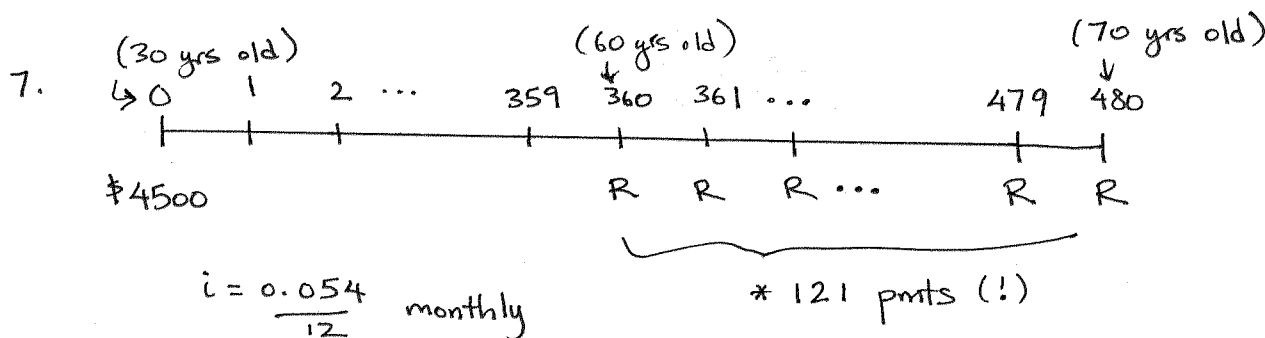 (30 yrs old) (60 yrs old) (70 yrs old)
7. ↳ 0 1 2 ... 359 360 361 ... 479 480
$4500 R R R ... R R
i = 0.054/12 monthly * 121 pmts (!)